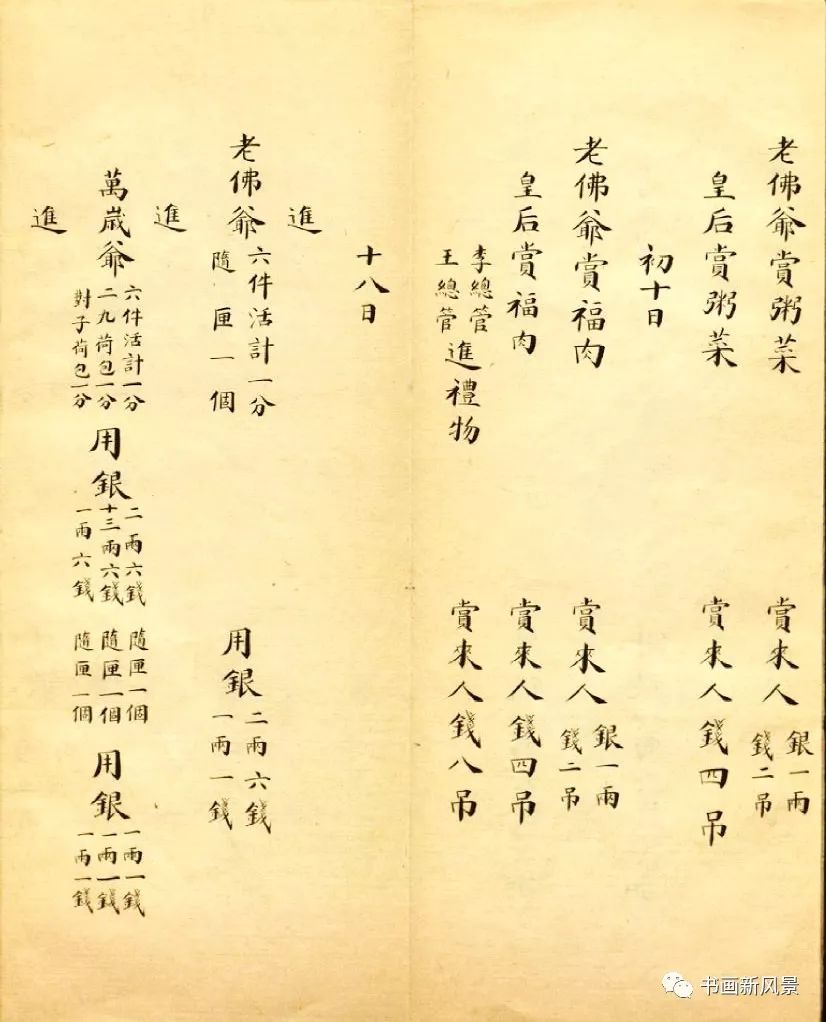 老佛爺賞粥菜 賞來人 銀一兩 錢二吊
皇后賞粥菜 賞來人錢四吊
初十日
老佛爺賞福肉 賞來人 銀一兩 錢二吊
皇后賞福肉 賞來人錢四吊
李總管 王總管 進禮物 賞來人錢八吊
十八日
進
老佛爺 六件活計一分 隨匣一個 用銀 二兩六錢 一兩一錢
進
萬歲爺 六件活計一分 二九荷包一分 對子荷包一分 用銀 二兩六錢 十三兩六錢 一兩六錢 隨匣一個 隨匣一個 隨匣一個 用銀 一兩一錢 一兩一錢 一兩一錢
進
书画新风景